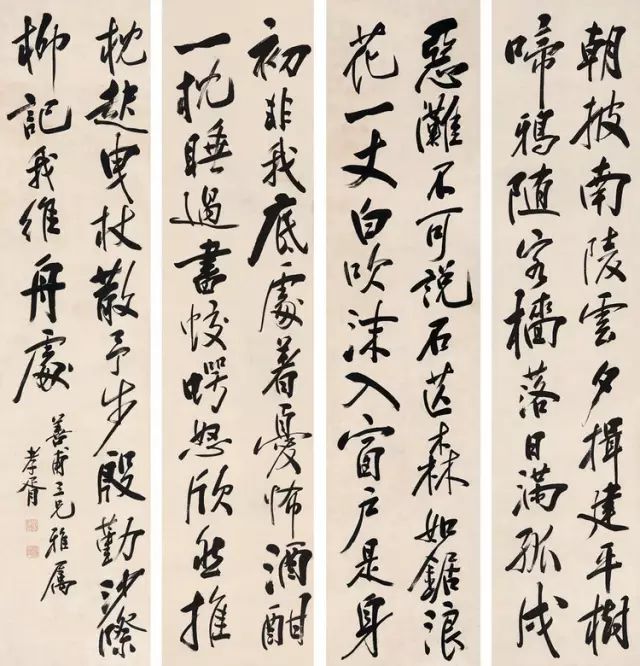 朝披南陵雲夕揖建平樹
啼鴉随客檣落日滿孤戍
惡灘不可說石芒森如鋸浪
花一丈白吹沫入窗戶是身
初非我底處着憂怖酒酣
一枕睡過盡蛟鱷怒欣然推
枕起曳杖散予步殷勤沙際
柳記我維舟處
善甫三兄雅屬
孝胥